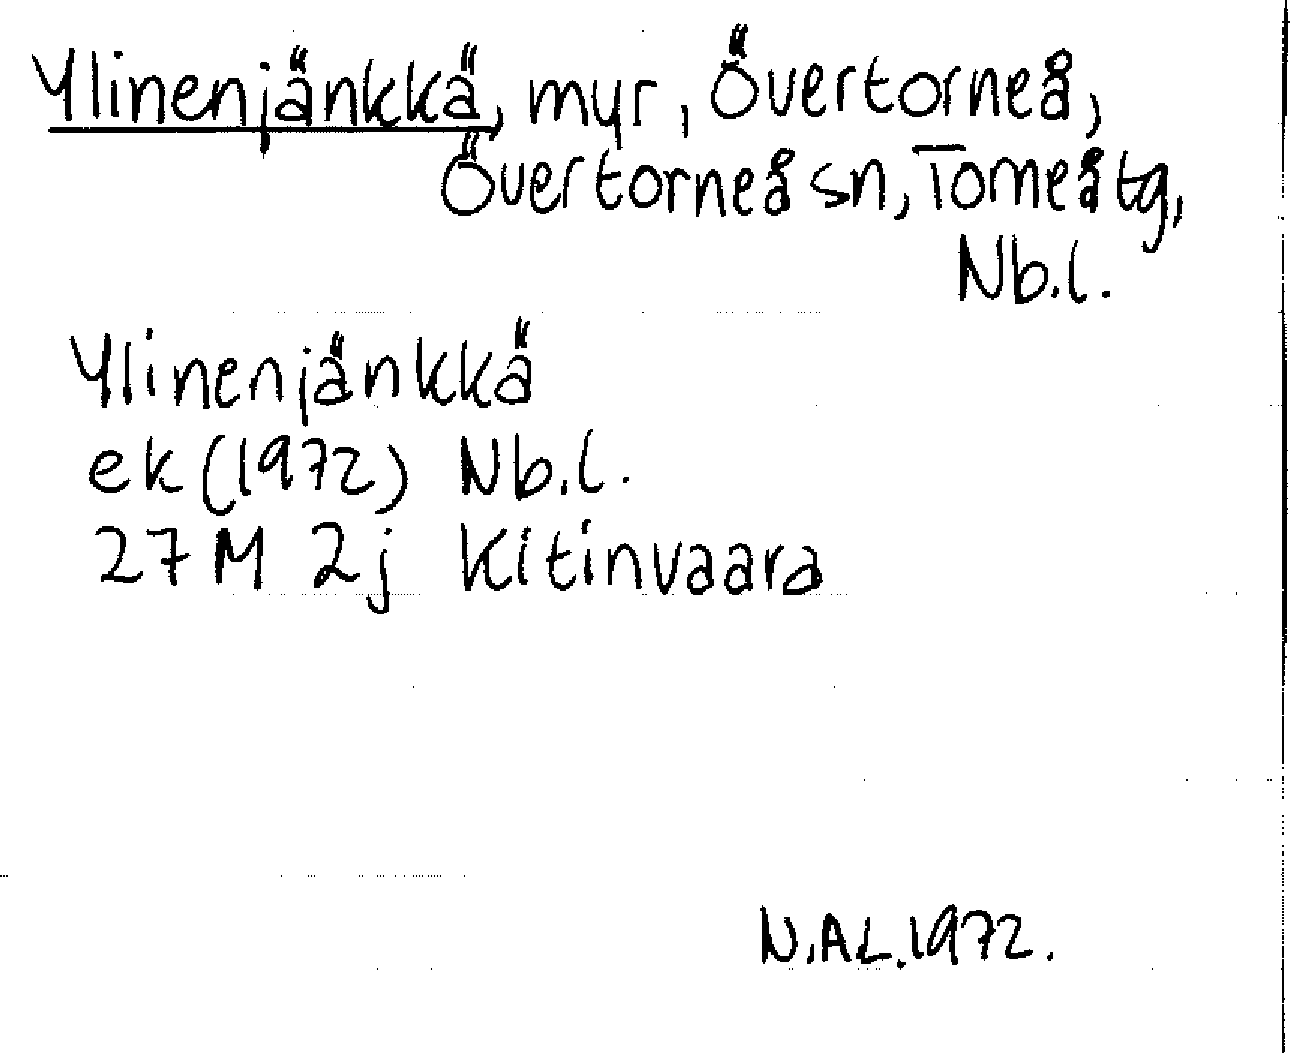 Ylinenjänkkä, myr, Övertorneå,
Övertorneå sn, Torneå tg,
Nb.l.
Ylinenjänkkä
ek (1972) Nb.l.
27 M 2j Kitinvaara
N.AL.1972.